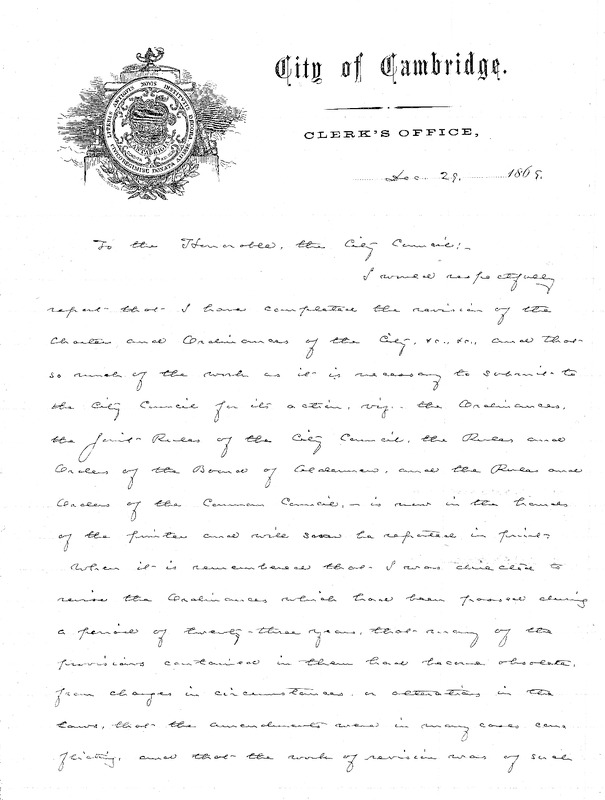 City of Cambridge.
LITERIS ANTIQUIS NOVIS INSTITUTIS DECORA
CANTABRIGIA
CLERK'S OFFICE,
Dec. 29. 1869.
To the Honorable, the City Council:-
I would respectfully
report that I have completed the revision of the
Charter and Ordinances of the City, &c., &c., and that
so much of the work as it is necessary to submit to
the City Council for its action, viz.. the Ordinances,
the Joint Rules of the City Council, the Rules and
Orders of the Board of Aldermen, and the Rules and
Orders of the Common Council, - is now in the hands
of the printer and will soon be reported in print.
When it is remembered that I was directed to
revise the Ordinances which have been passed during
a period of twenty-three years, that many of the
provisions contained in them had become obsolete,
from changes in circumstances, or alterations in the
laws, that the amendments were in many cases con
flicting, and that the work of revision was of such